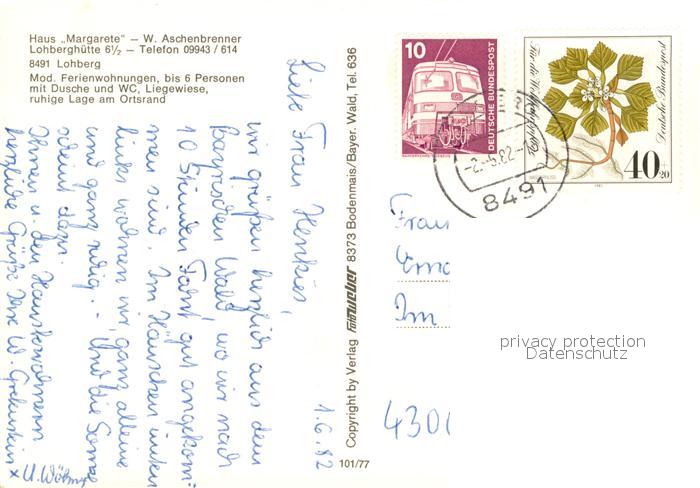 Haus „Margarete" – W. Aschenbrenner
Lohberghütte 6½ – Telefon 09943 / 614
8491 Lohberg
Mod. Ferienwohnungen, bis 6 Personen
mit Dusche und WC, Liegewiese,
ruhige Lage am Ortsrand
1.6.82
Liebe Frau Henkies,
wir grüßen herzlich aus dem
Bayrischen Wald, wo wir nach
10 Stunden Fahrt gut angekom-
men sind. Im Häuschen unten
links wohnen wir, ganz alleine
und ganz ruhig. - Und die Sonne
scheint dazu.
Ihnen u. den Hausbewohnern
herzliche Grüße Ihre W.
x U.
Copyright by Verlag foto weber 8373 Bodenmais/Bayer. Wald, Tel. 636
101/77
10
DEUTSCHE BUNDESPOST
Für die Wohlfahrtspflege
Deutsche Bundespost
40+20
1981
-2.-6.82
8491
Frau
Im
4300
privacy protection
Datenschutz